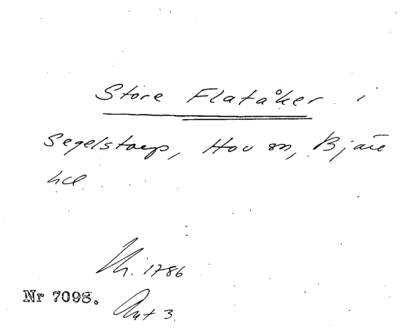 Store Flatåker i
Segelstorp, Hov sn, Bjäre
hd
1786
Nr 7098. Akt 3.